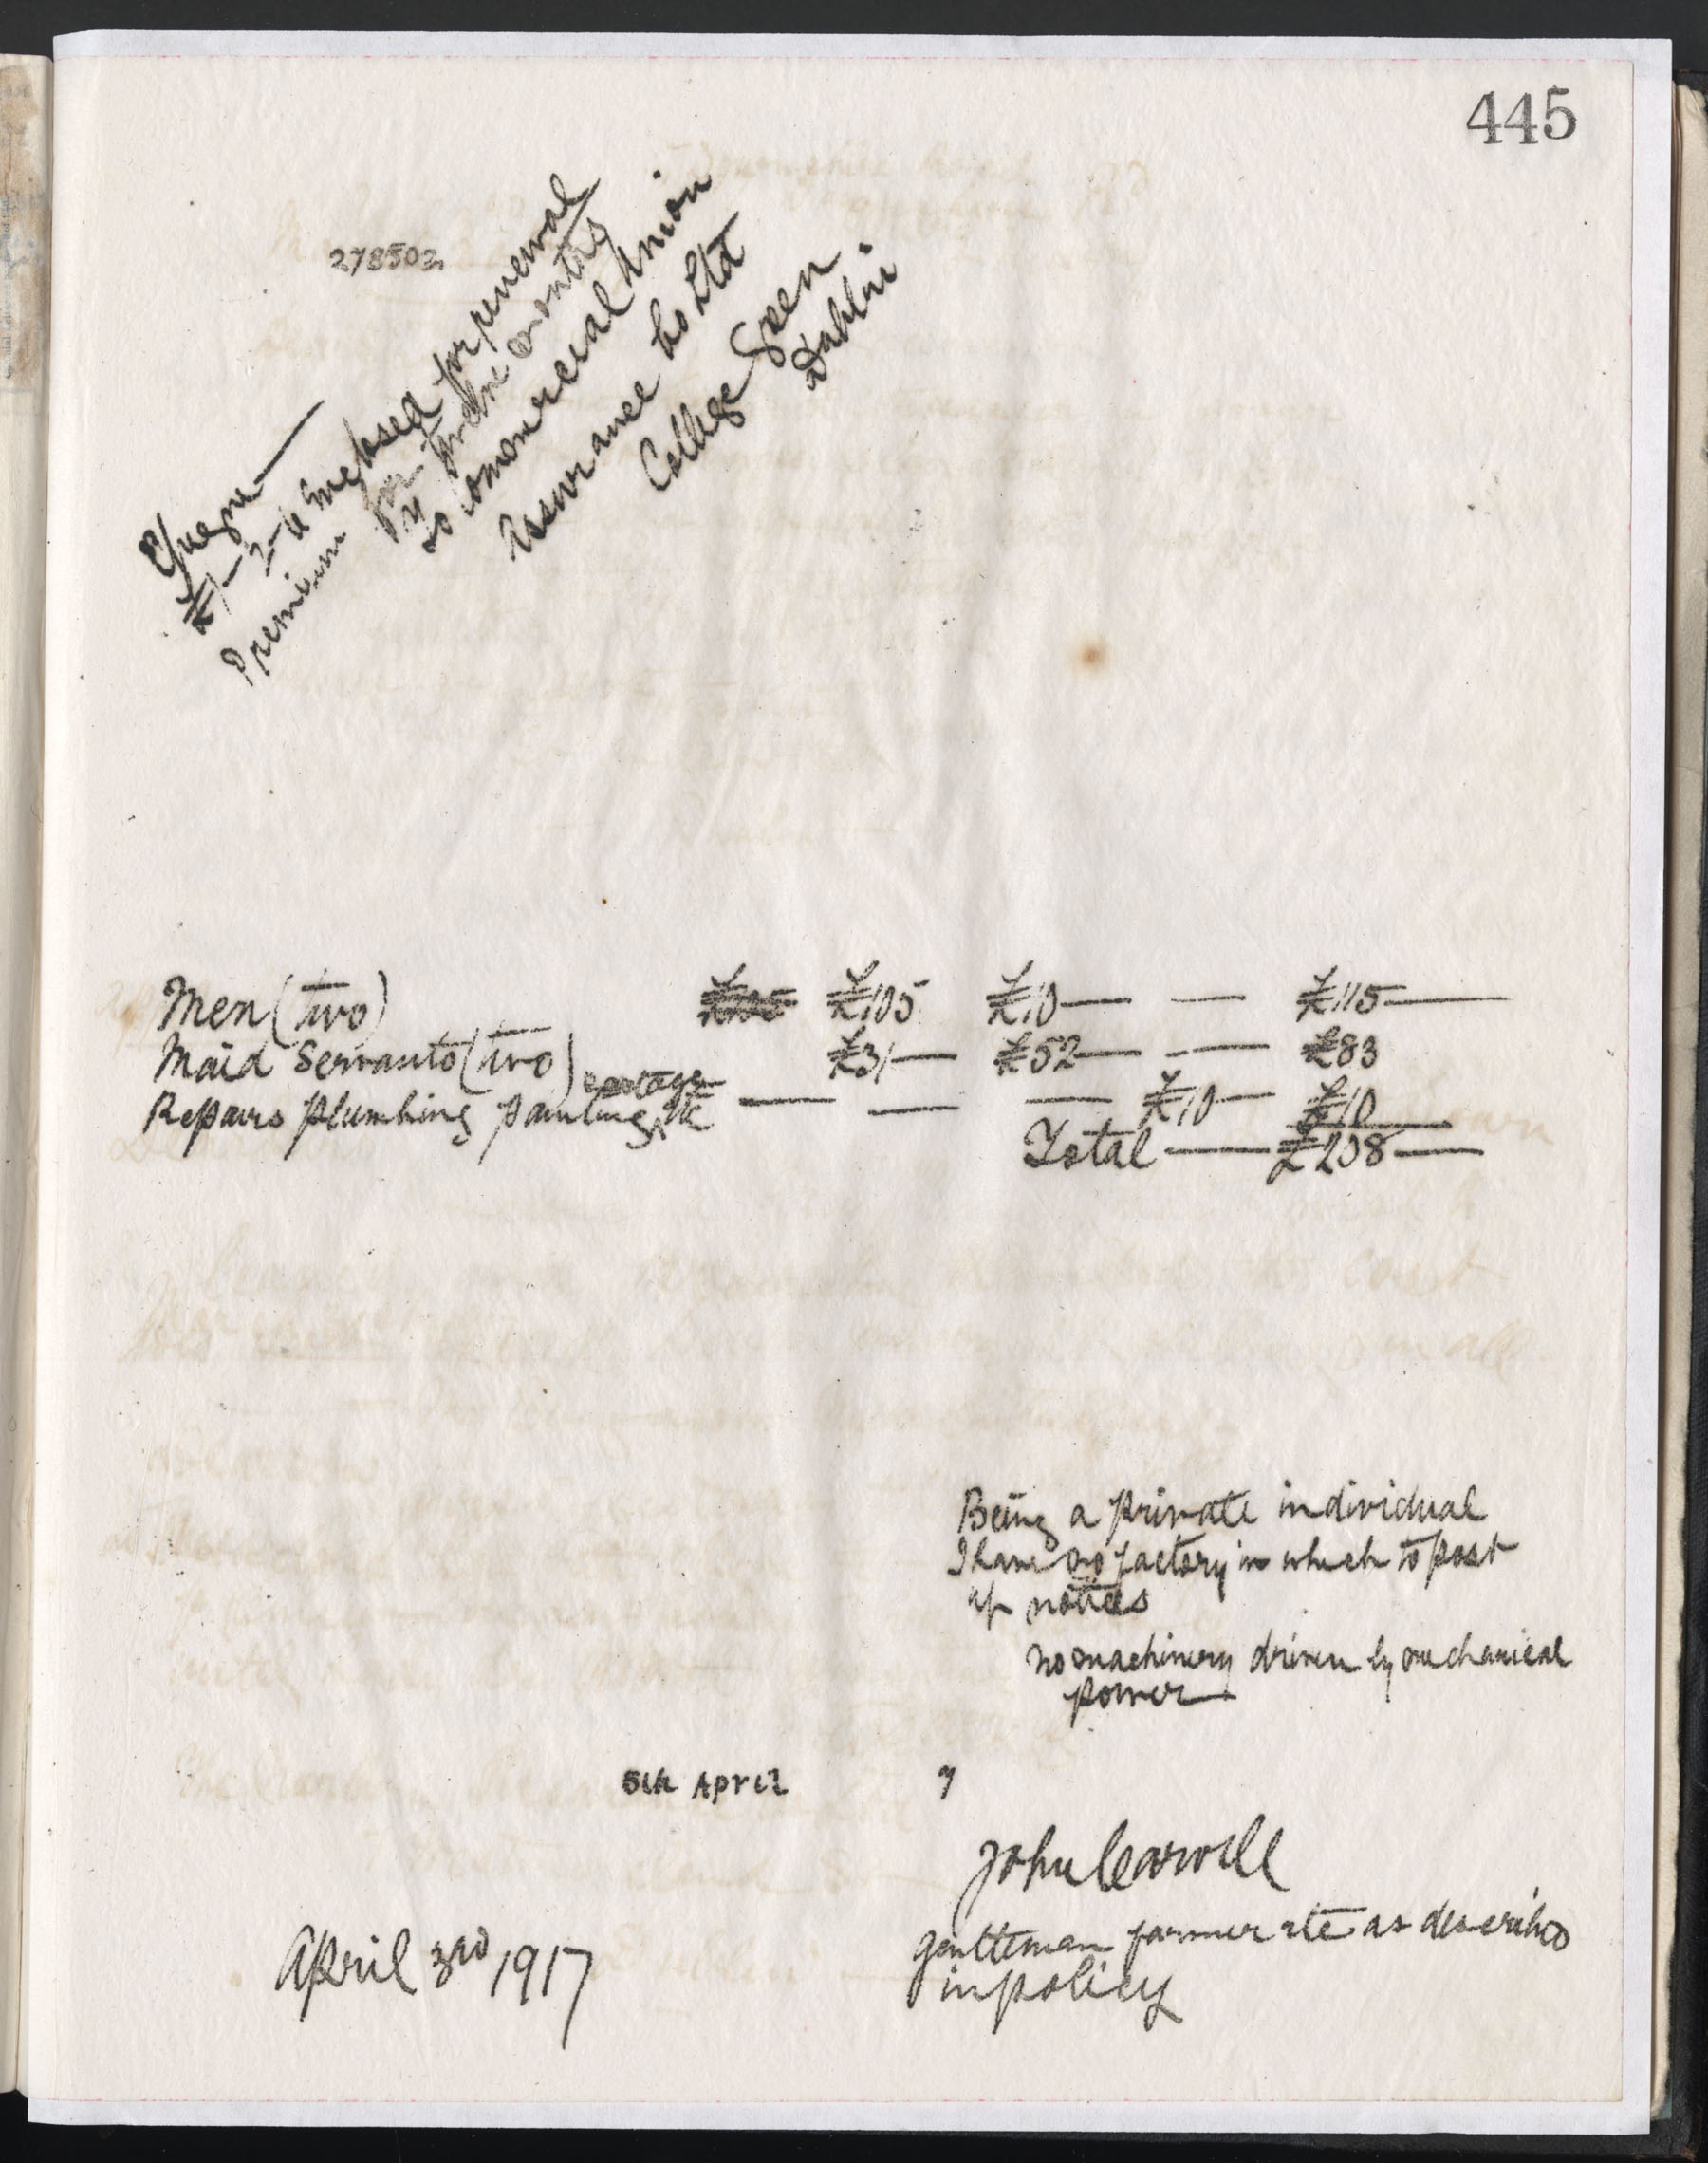 445
278502
Cheque —
£1-2-6 inclosed for renewal
Premium for twelve months
To Commercial Union
Assurance Co Ltd
College Green
Dublin
Men (two) £105 £10 — — £115 —
Maid Servants (two) £31 — £52 — — £83
cartage
Repairs plumbing painting etc — — — £10 — £10
Total — £208 —
Being a private individual
I have no factory in which to post
up notices
no machinery driven by mechanical
power
5th April 7
John Carvill
gentleman farmer etc as describd
in policy
April 3rd 1917